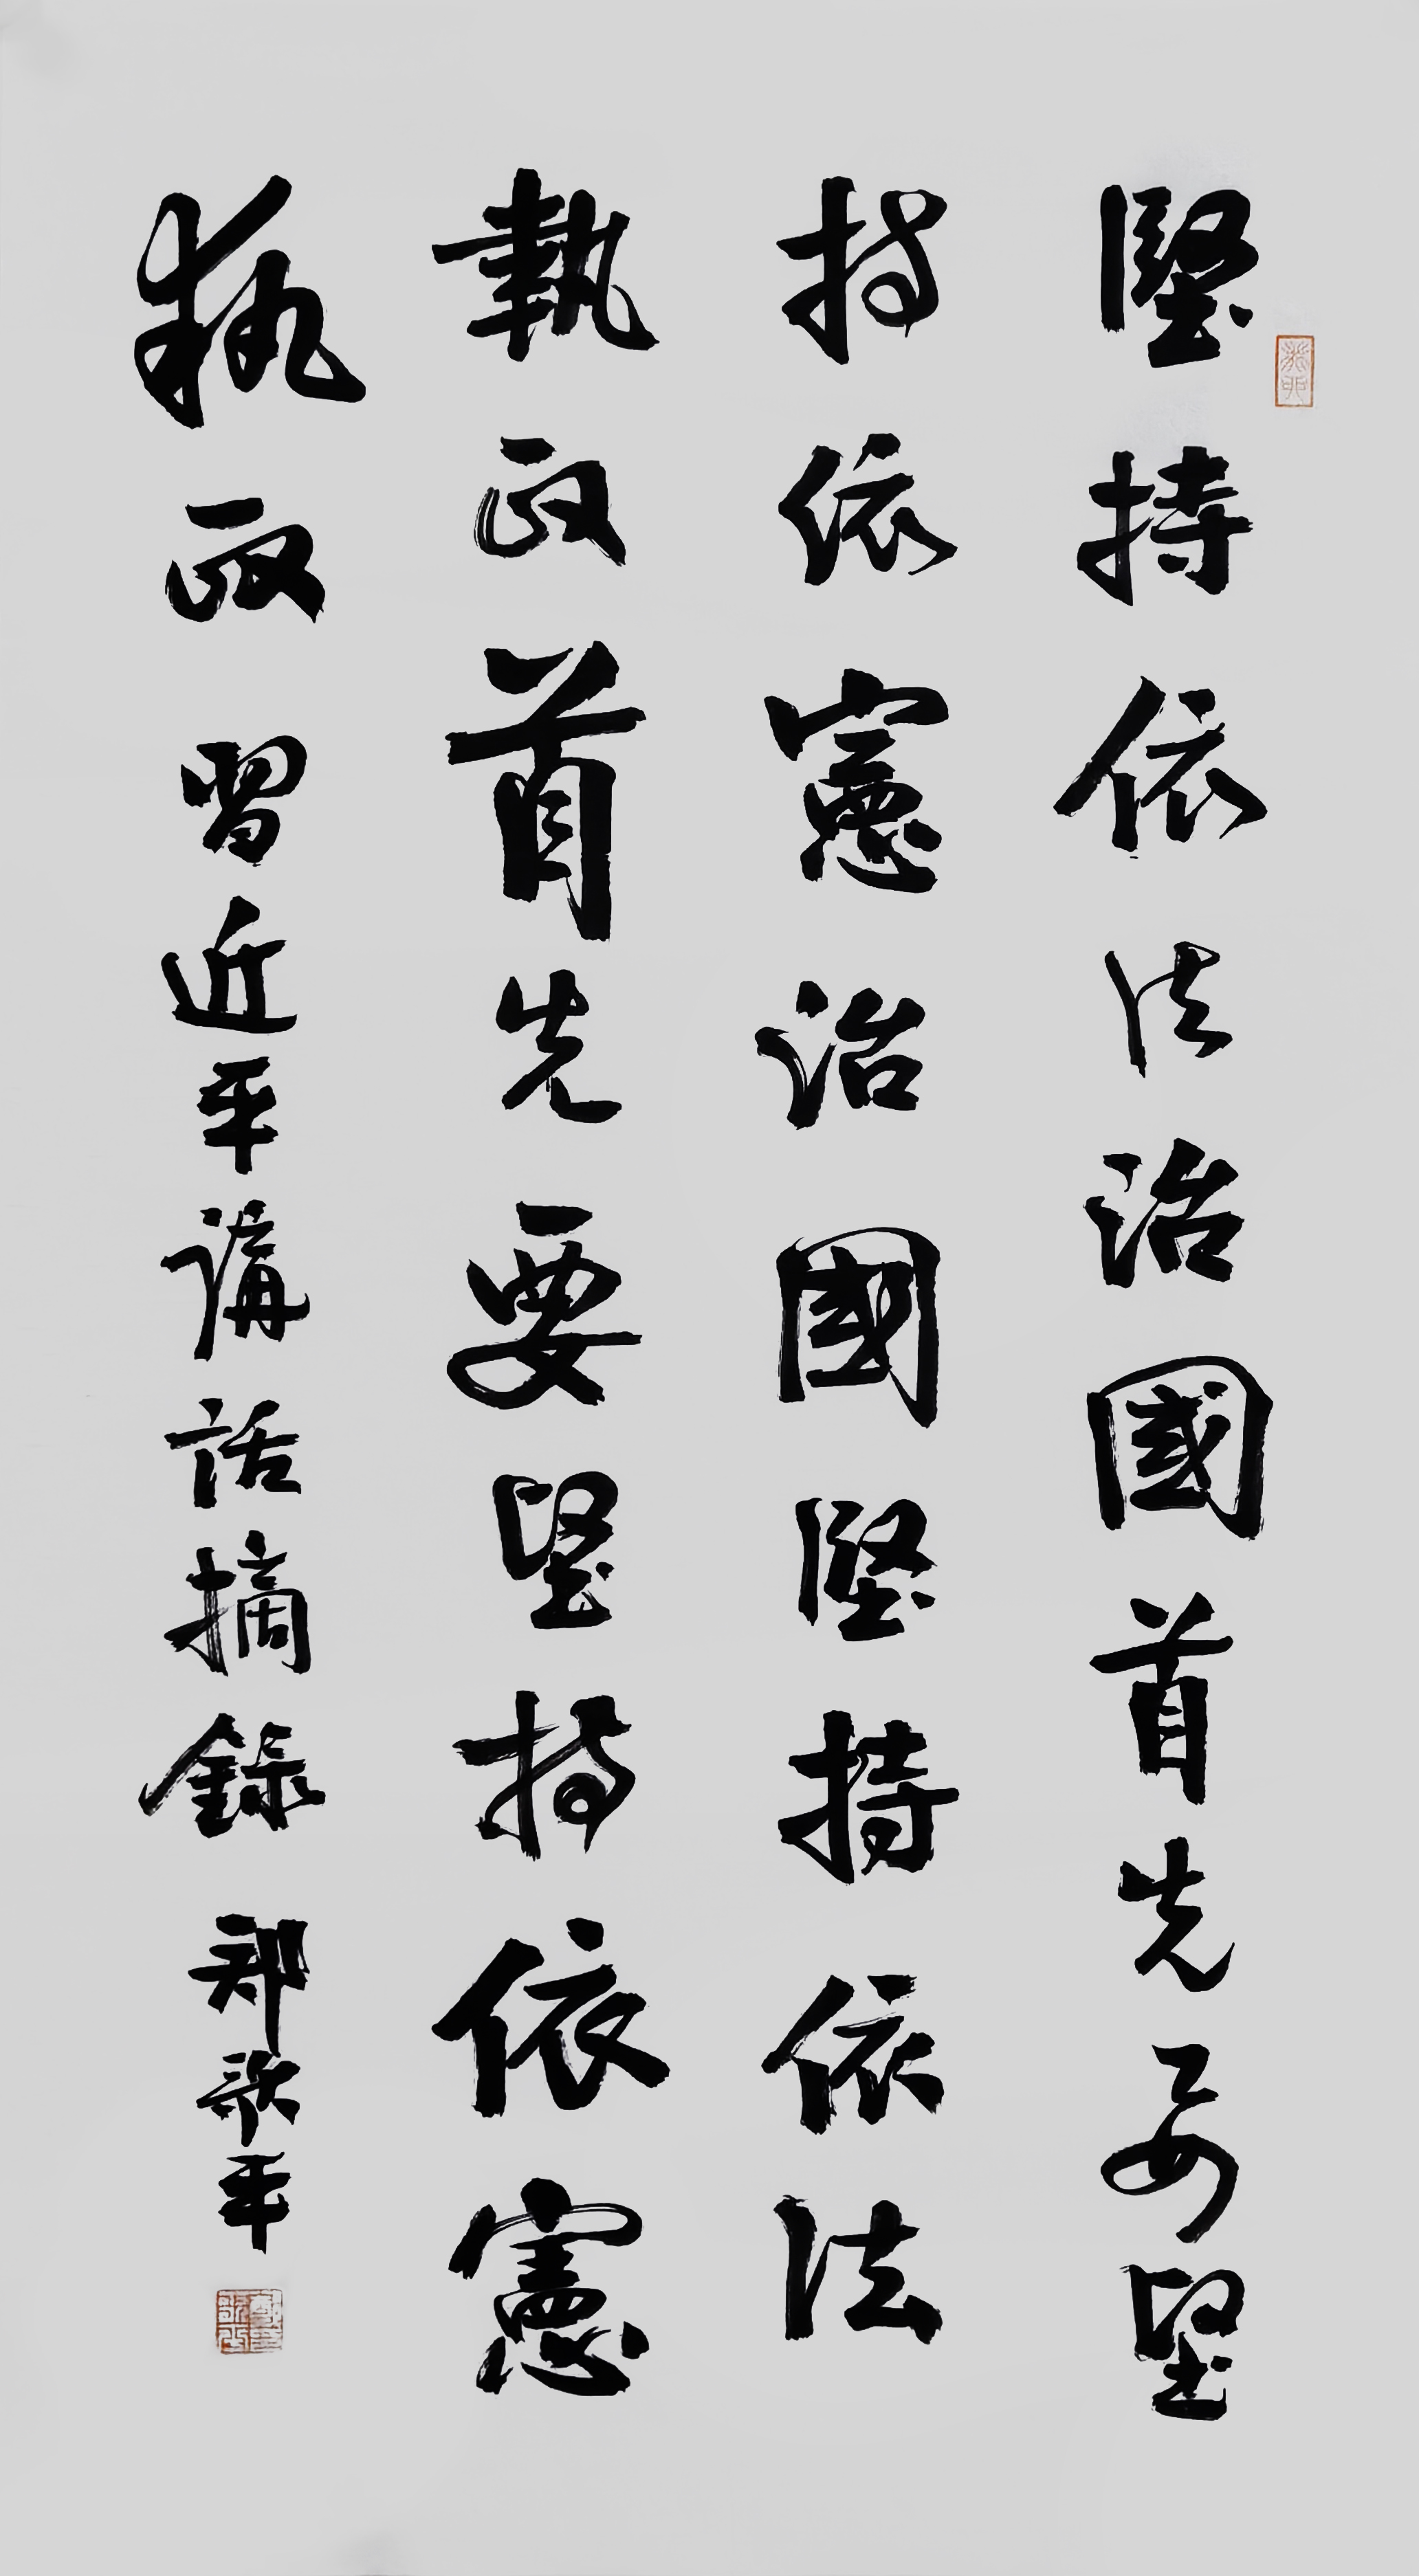 堅持依法治國首先要堅
持依憲治國堅持依法
執政首先要堅持依憲
執政 習近平講話摘錄 鄭歌平